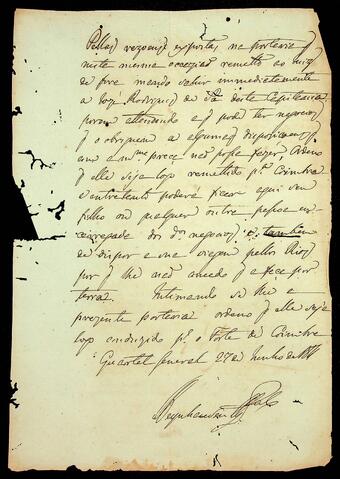 Pellas rezoens expostas na portaria q
nesta mesma occazião remetto ao Juiz
de fora mando sahir immediatamente
a José Rodrigues de Sá desta Capitania
porem attendendo a q pode ter negocios
q o obriguem a algumas dispoziçoens, q
não possa fazer, Ordeno
q elle seja logo remettido pa Coimbra
e entretanto poderá ficar aqui seu
filho ou qualquer outra pessoa en-
carregada dos negocios, e tambem
de dispor a sua viagem pellos Rios
por q lhe não concedo q a faça por
terra. Intimando se lhe a
prezente portaria ordeno q elle seja
logo conduzido pa o Forte de Coimbra
Quartel General 27 de Junho de